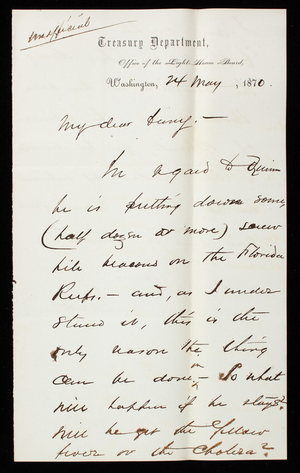 unofficial
Treasury Department,
Office of the Light-House Board,
Washington, 24 May, 1870.
My dear
In regard to Quinn
he is putting down some
(half dozen or more) screw
pile beacons on the Florida
Reefs. — and, as I under
stand it, this is the
only reason the thing
can be done — So what
will happen if he stays?
Will he get the Yellow
fever or the Cholera?